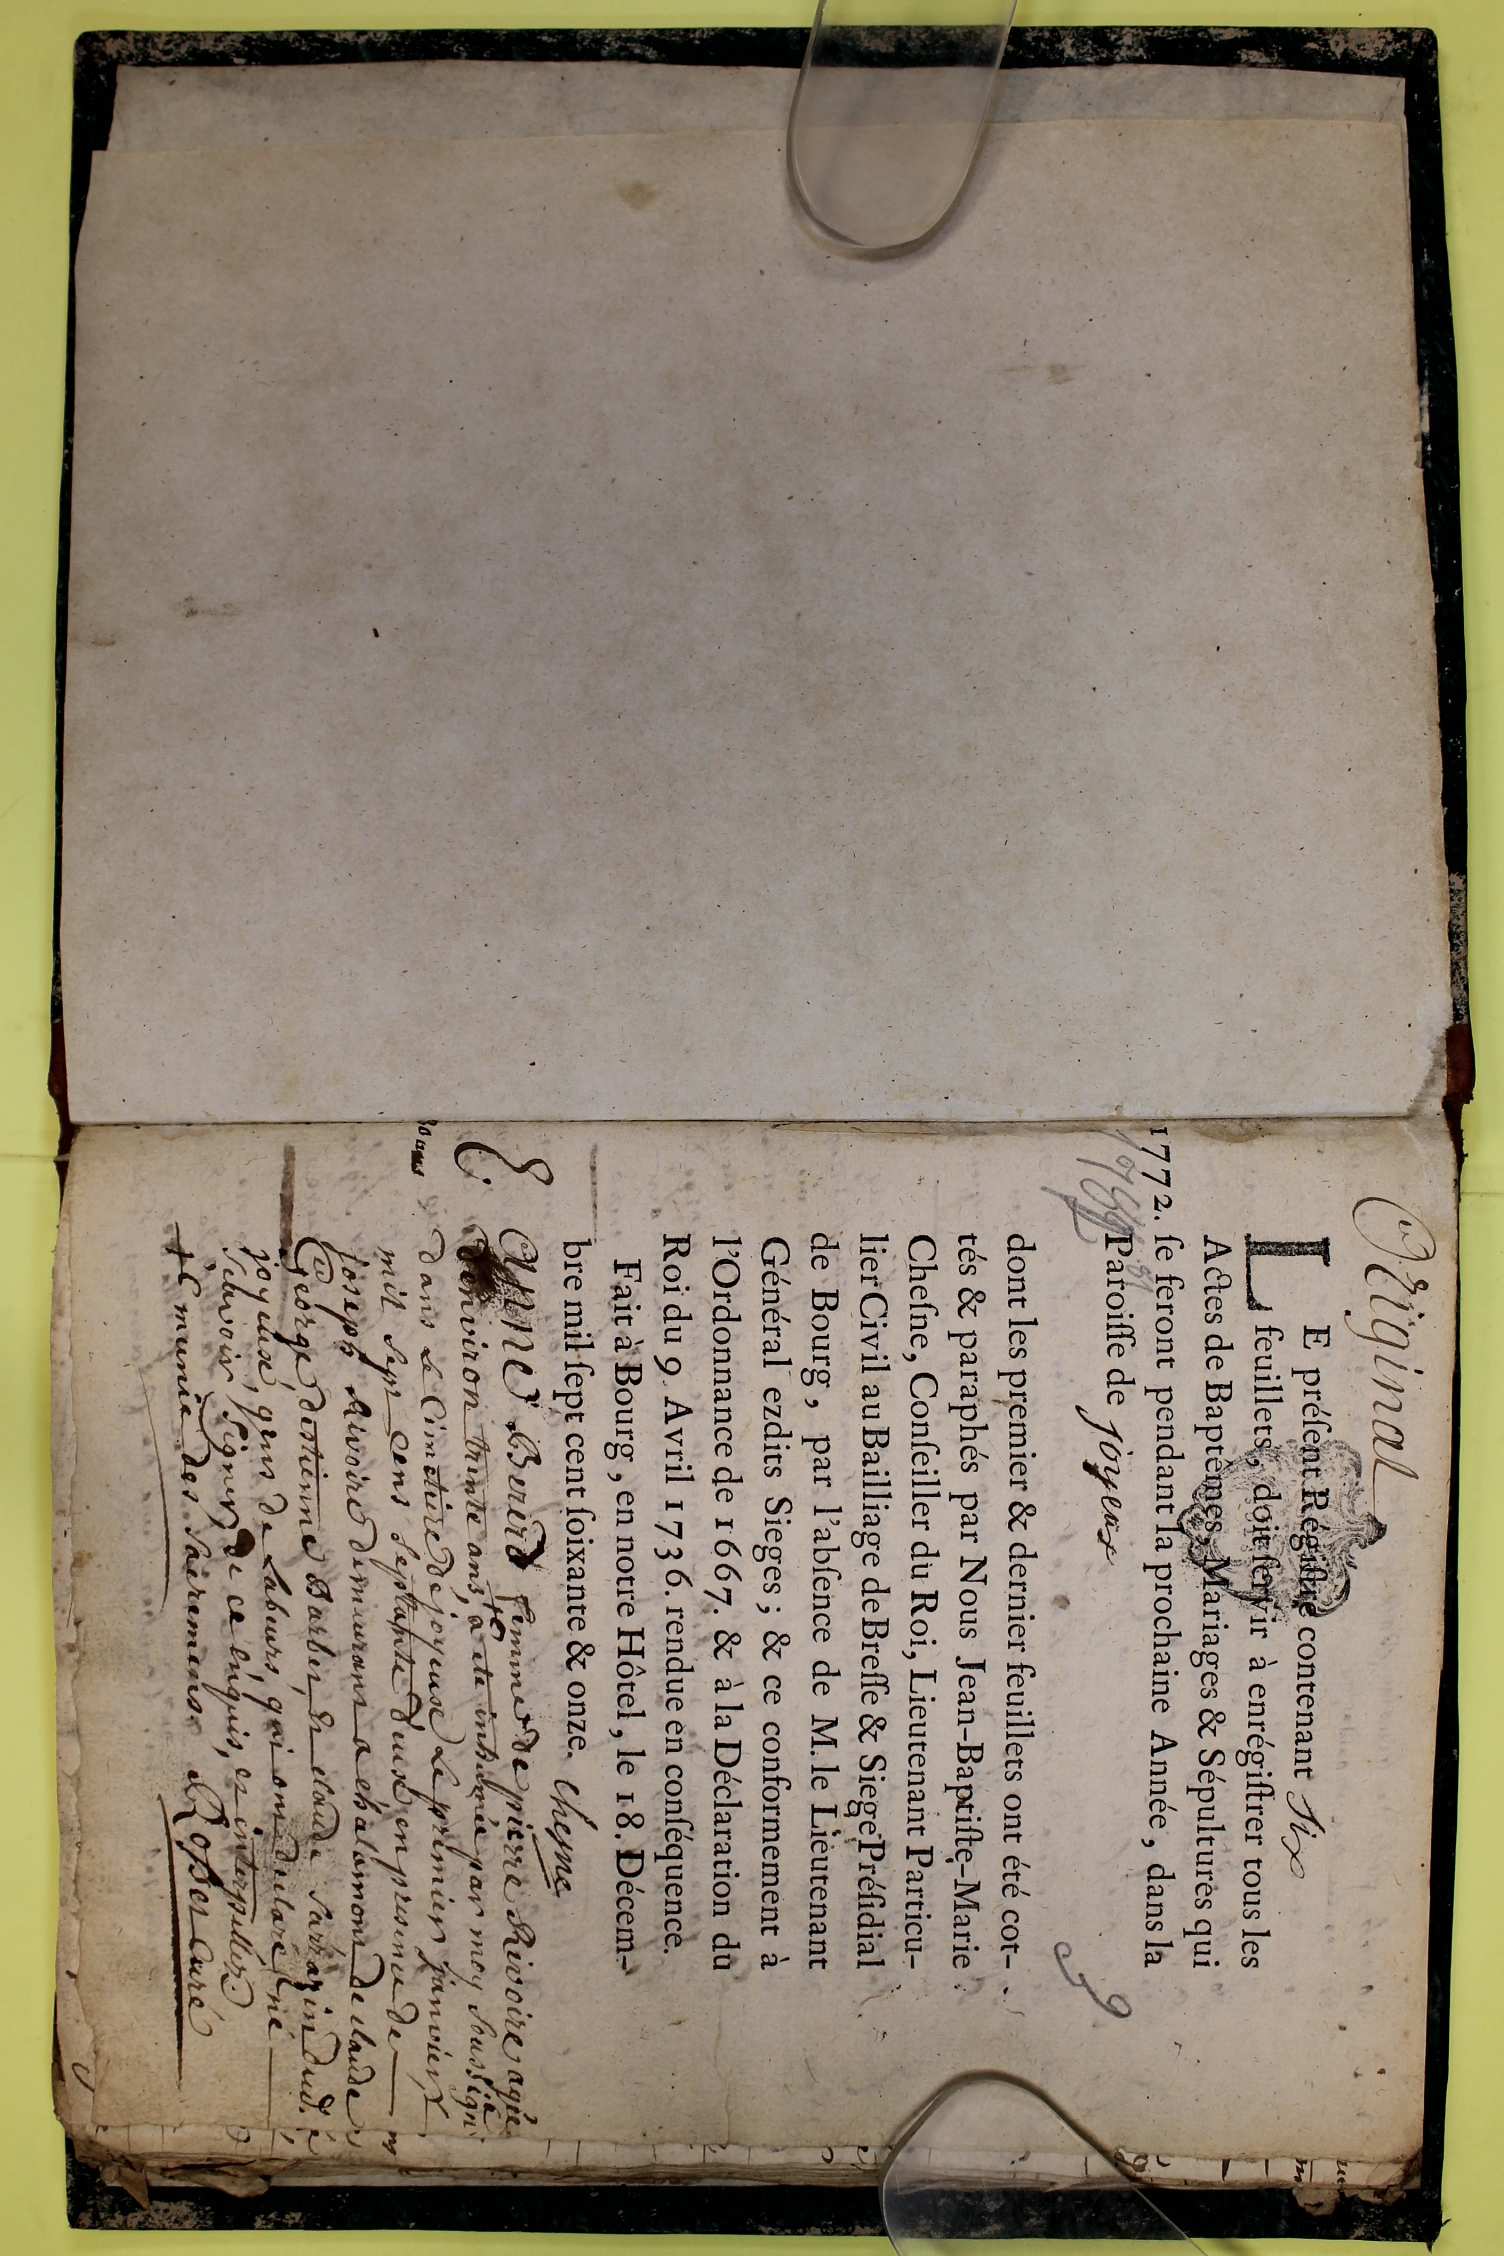 Original
LE préſent Régiſtre contenant Six
feuillets, doit ſervir à enrégiſtrer tous les
Actes de Baptêmes, Mariages & Sépultures qui
ſe feront pendant la prochaine Année, dans la
1772.
Paroiſſe de joyeux
dont les premier & dernier feuillets ont été cot-
tés & paraphés par Nous Jean-Baptiſte-Marie
Cheſne, Conſeiller du Roi, Lieutenant Particu-
lier Civil au Bailliage de Breſſe & Siege Préſidial
de Bourg, par l'abſence de M. le Lieutenant
Général ezdits Sieges; & ce conformement à
l'Ordonnance de 1667. & à la Déclaration du
Roi du 9. Avril 1736. rendue en conſéquence.
Fait à Bourg, en notre Hôtel, le 18. Décem-
bre mil ſept cent ſoixante & onze. Chesne
Anne Berird femme de pierre Rivoire agée
denviron trente ans, + a été inhumée par moy soussigné
dans le Cimetiere de joyeuse le premier janvier
mil sept cens septante deux en presence de
joseph Rivoire demeurant a chalamont de claude
george détienne Barbet, de claude Sarrazin dud.
joyeux, gens de Labeurs, qui ont declaré ne
scavoir Signer de ce enquis, et interpellés
+ et munie des Sacremens Rosset Curé